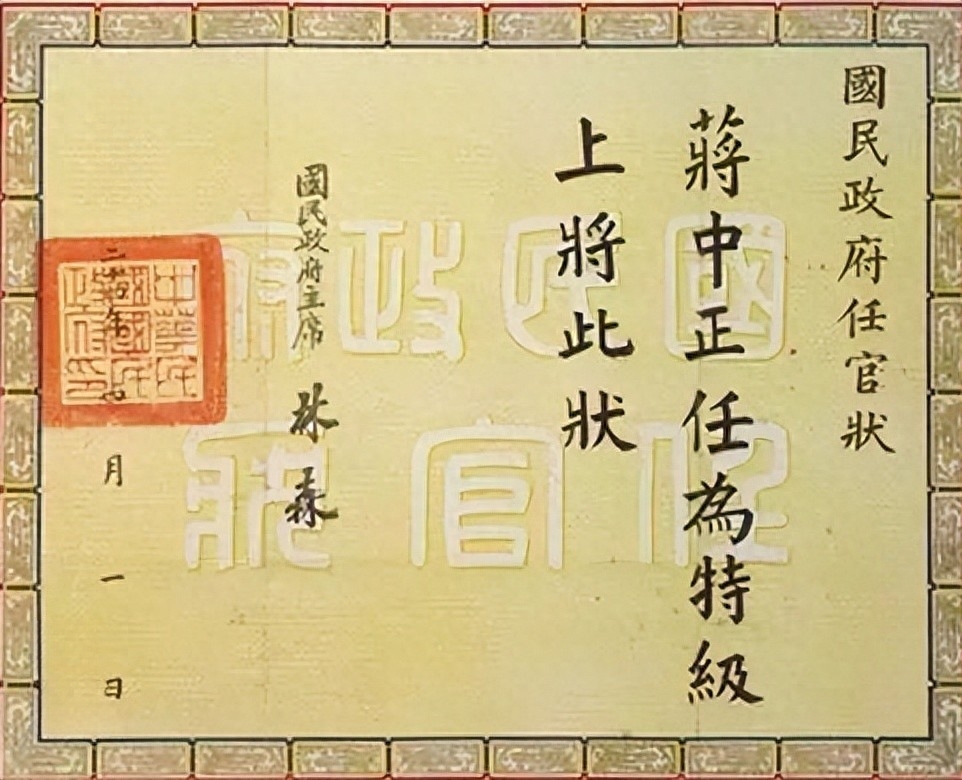 國民政府任官狀
蔣中正任為特級
上將此狀
國民政府主席 林森
二十四年四月一日
國民政府
任官狀
中華民
國國民
政府印